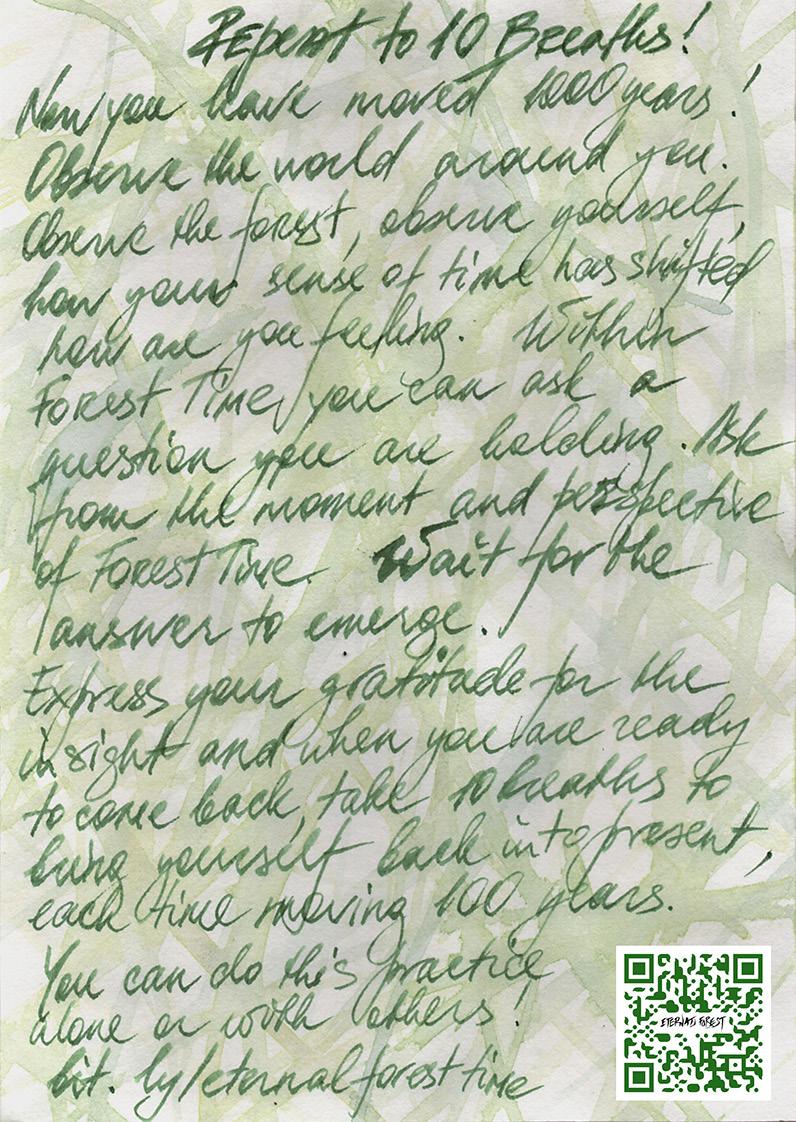 Repeat to 10 Breaths!
Now you have moved 1000 years!
Observe the world around you.
Observe the forest, observe yourself,
how your sense of time has shifted
how are you feeling. Within
Forest Time, you can ask a
question you are holding. Ask
from the moment and perspective
of Forest Time. Wait for the
answer to emerge.
Express your gratitude for the
insight and when you are ready
to come back, take 10 breaths to
bring yourself back into present,
each time moving 100 years.
You can do this practice
alone or with others!
bit.ly/eternalforesttime
ETERNAL FOREST